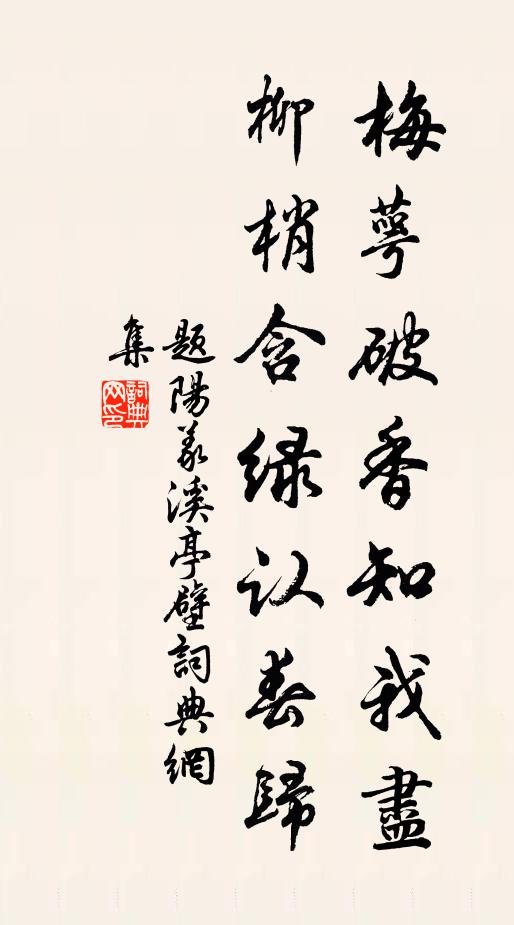 梅萼破香知我盡
柳梢含緑认春歸
题陽羨溪亭壁詞典網
集
詞典網印